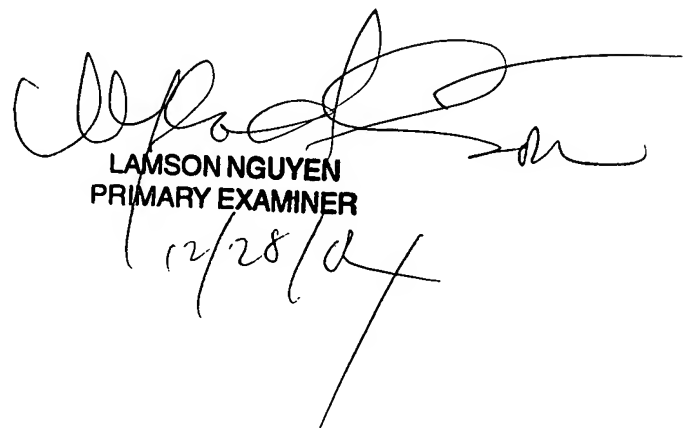 LAMSON NGUYEN
PRIMARY EXAMINER
12/28/04